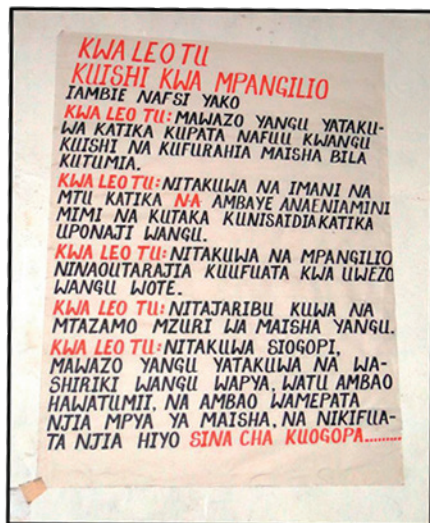 KWA LEO TU
KUISHI KWA MPANGILIO
IAMBIE NAFSI YAKO
KWA LEO TU: MAWAZO YANGU YATAKU-
WA KATIKA KUPATA NAFUU KWANGU
KUISHI NA KUFURAHIA MAISHA BILA
KUTUMIA.
KWA LEO TU: NITAKUWA NA IMANI NA
MTU KATIKA NA AMBAYE ANAENIAMINI
MIMI NA KUTAKA KUNISAIDIAKATIKA
UPONAJI WANGU.
KWA LEO TU: NITAKUWA NA MPANGILIO
NINAOUTARAJIA KUUFUATA KWA UWEZO
WANGU WOTE.
KWA LEO TU: NITAJARIBU KUWA NA
MTAZAMO MZURI WA MAISHA YANGU.
KWA LEO TU: NITAKUWA SIOGOPI,
MAWAZO YANGU YATAKUWA NA WA-
SHIRIKI WANGU WAPYA, WATU AMBAO
HAWATUMII, NA AMBAO WAMEPATA
NJIA MPYA YA MAISHA, NA NIKIFUA-
TA NJIA HIYO SINA CHA KUOGOPA.........